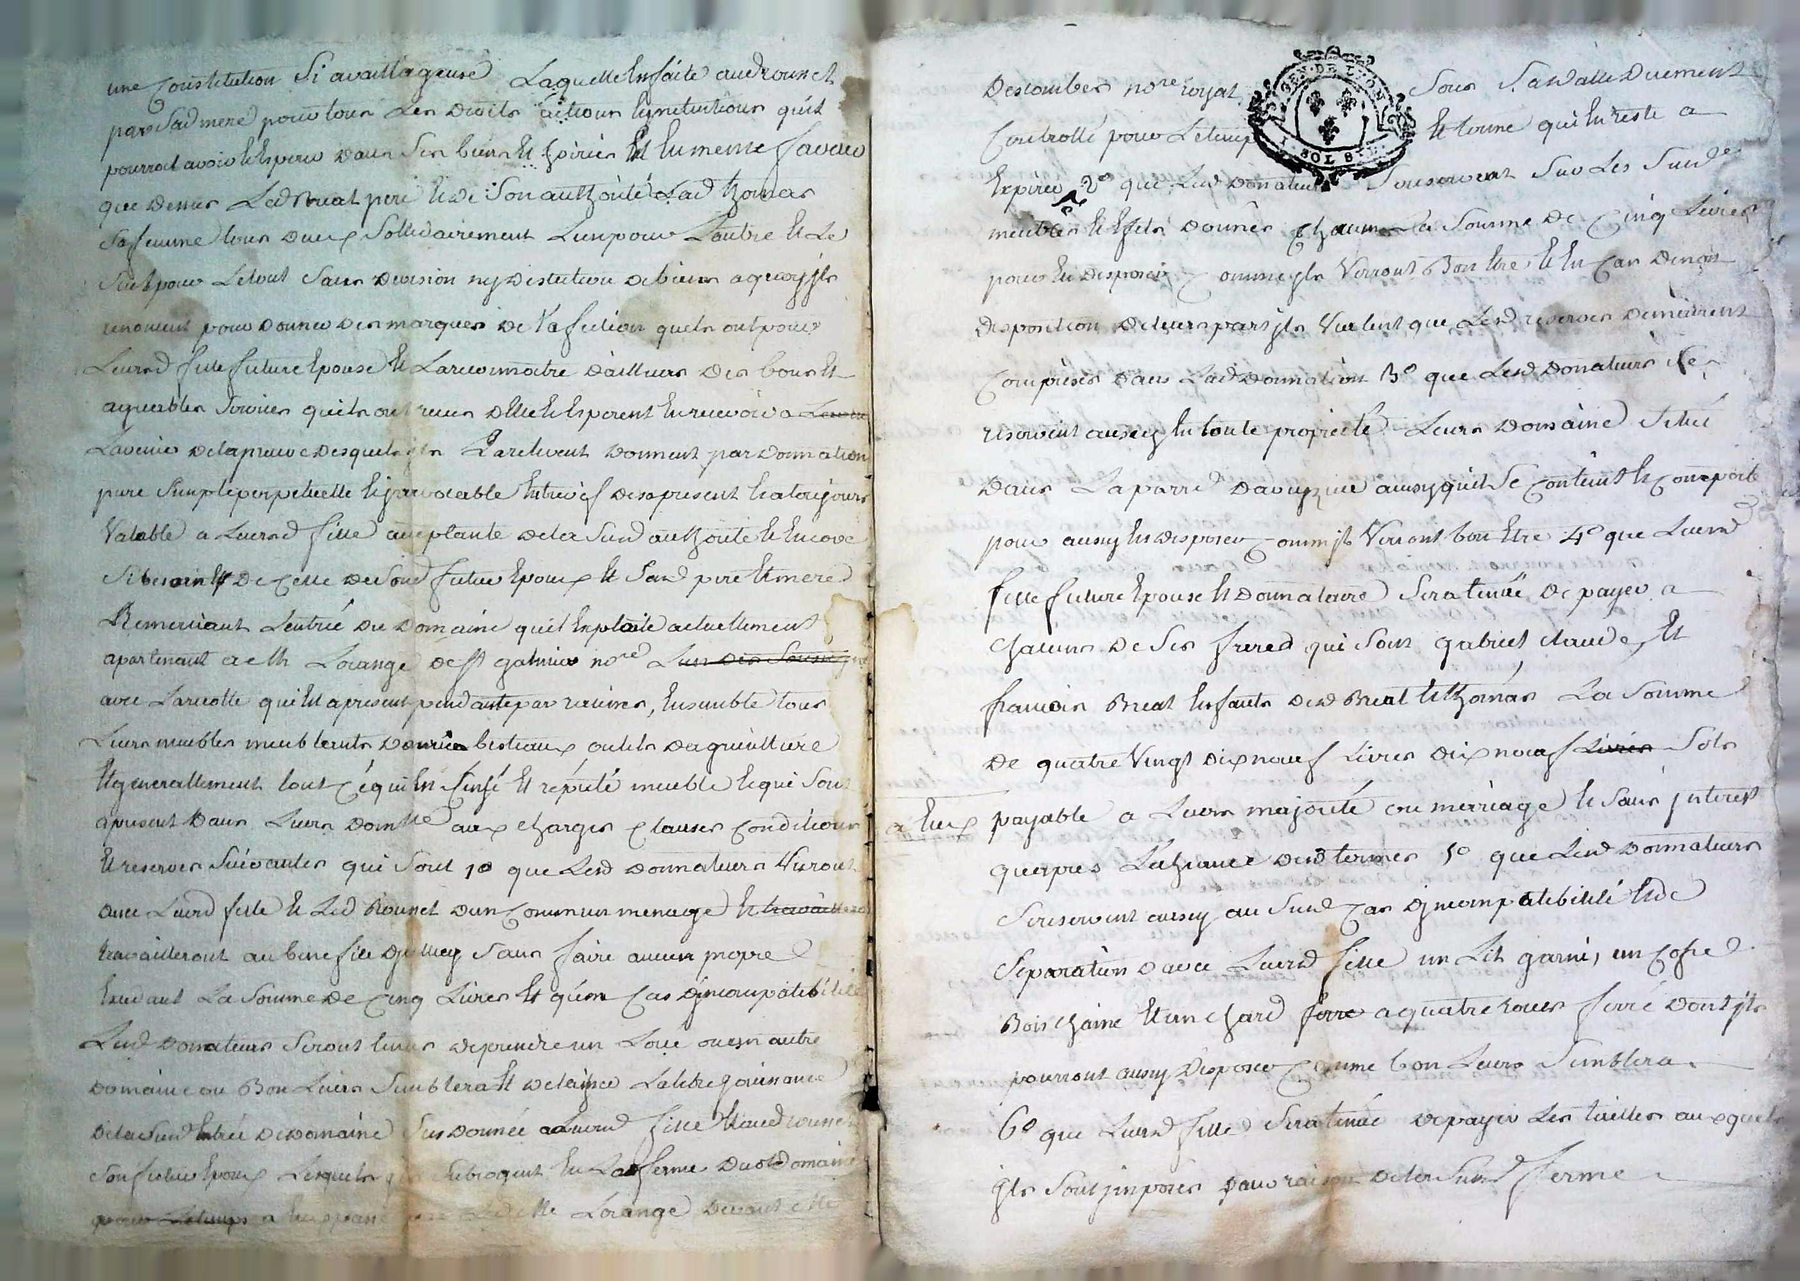 une Constitution si avantageuse Laquelle En faite aud rounet
par sad mere pour tous Les Droits actions Epretentions quil
pourroit avoir Et Espere dans ses biens Et hoiries Et En meme faveur
que dessus Led Breat pere Et de son authorité Lad thomas
sa femme tous deux sollidairement Lun pour Lautre Et Le
seul pour Le tout sans division ny discution de biens a quoy jls
renoncent pour donner des marques de l'afection quels ont pour
Leurd fille future Epouse Et La reconnoitre dailleurs des bons Et
agreables services quils ont reçus delle Et Esperent En recevoir a
Lavenir de la preuve desquels jls La relevent donnent par donnation
pure simple perpetuelle Ejrrevocable Entre vifs des apresent Et a toujours
Valable a Leurd fille aceptante de la susd authorité Et Encore
si besoin Et de Celle de Sond futur Epoux Et Sesd pere Et mere
Lentrée du Domaine quil Exploite actuellement
apartenant a Mr Lorange de St galmier nore Lun des
avec La recolte qui Est apresent pendante par racines, Ensemble tous
Leurs meubles meublants danrées bestiaux outils dagriculture
Et generallement tout Ce qui Est sensé Et reputé meuble Et qui sont
apresent dans Leurs domlle aux charges Clauses Conditions
Et reserves suivantes qui sont 1o que Lesd donnateurs Vivront
avec Leurd fille Et Led Rounet dun Commun menage Et travailleront
travailleront au benefice djceluy sans faire aucun propre
Exedant La somme de Cinq Livres Et quen Cas djncompatibilité
Lesd donnateurs seront tenus de prendre un Loué ou un autre
domaine ou Bon Leurs semblera Et de laisser La libre jouissance
de la susd Entrée de domaine sus donnée a Leurd fille Et aud rounet
son futur Epoux Lesquels jls subrogent En La ferme dud domaine
pour Le temps a Eux passé par Led Mr Lorange devant Mr
Descombes nore royal Sous sa datte Duement
Controllé pour Le temps Et terme qui En reste a
Expirer 2o que Lesd donnateurs se reservent sur Les susds
meubles Et Effets donnés chacun La somme de Cinq Livres
pour En disposer Comme jls Verront Bon Etre Et En Cas de non
disposition de leurs parts jls Veulent que Lesd reserves demeurent
Comprises dans Lad donnation 3o que Lesd donnateurs se
reservent aussy En toute proprieté Leurs domaine situé
dans La parre davezine aussy quil se Contient Et Comporte
pour aussy En disposer Comm jls Verront bon Etre 4o que Leurd
fille future Epouse Et donnataire sera tenüe de payer a
Chacuns de ses freres qui sont gabriel claude, Et
francois Breat Enfants desd Breat Et thomas La somme
de quatre Vingt dix neuf Livres dix neuf Livres sols
a Eux payable a Leurs majorité ou mariage Et sans jnterest
quaprès L'echeance desd termes 5o que Lesd donnateurs
se reservent aussy au susd Cas djncompatibilité Et de
separation davec Leurd fille un Lit garni, un Cofre
Bois chaine Et un chard ferré a quatre roues ferré dont jls
pourront aussy disposer Comme bon Leurs semblera
6o que Leurd fille sera tenüe de payer Les tailles auxquels
jls sont jmposés pour raison de la susd ferme
GEN DE LYON
1 SOL